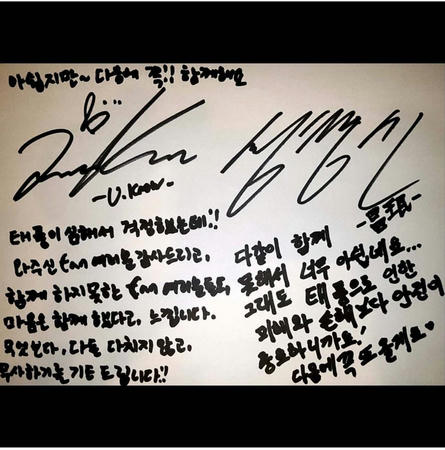 아쉽지만~ 다음에 꼭!! 함께해요
-U.Know-
태풍이 심해서 걱정했는데!!
와주신 fan 여러분 감사드리고,
함께 하지 못한 fan 여러분들도,
마음은 함께 했다고, 느낍니다.
무엇보다, 다들 다치지 않고,
무사하기를 기도 드립니다!!
다같이 함께
못해서 너무 아쉽네요...
그래도 태풍으로 인한
피해와 손해보다 안전이
중요하니까요!
다음에 꼭 또 올게요♡